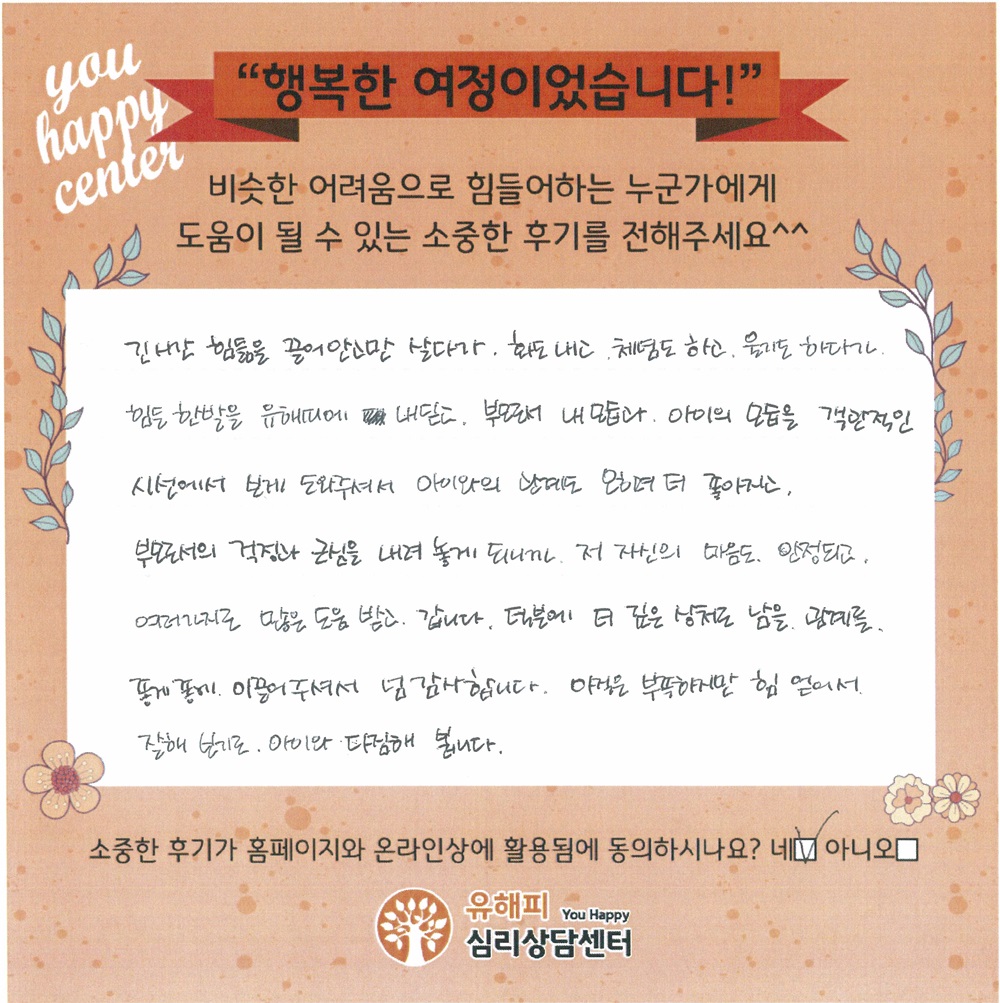 you
happy
center
“행복한 여정이었습니다!”
비슷한 어려움으로 힘들어하는 누군가에게
도움이 될 수 있는 소중한 후기를 전해주세요^^
긴 시간 힘듦을 끌어안고만 살다가. 화도 내고, 체념도 하고, 울기도 하다가.
힘든 한발을 유해피에 내딛고, 부모로서 내 모습과. 아이의 모습을 객관적인
시선에서 보게 도와주셔서 아이와의 관계도 오히려 더 좋아지고,
부모로서의 걱정과 근심을 내려 놓게 되니까. 저 자신의 마음도. 안정되고,
여러가지로 많은 도움 받고. 갑니다. 덕분에 더 깊은 상처로 남을. 관계를,
좋게 좋게. 이끌어 주셔서 넘 감사합니다. 아직은 부족하지만 힘 얻어서.
잘해 보기로. 아이와 다짐해 봅니다.
소중한 후기가 홈페이지와 온라인상에 활용됨에 동의하시나요? 네 아니오
유해피 You Happy
심리상담센터